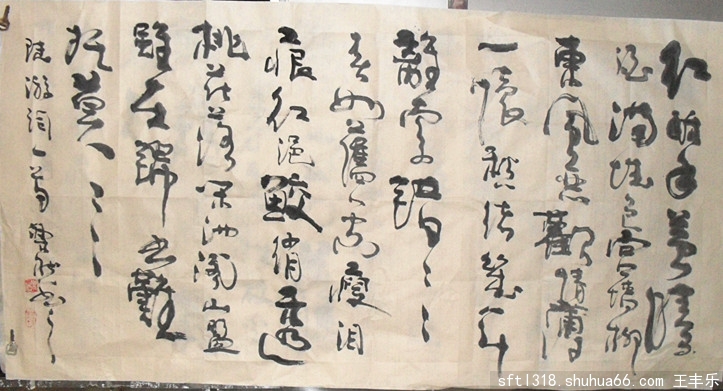 红酥手黄縢
酒满城春色宫墙柳
東風惡歡情薄
一懷愁緒幾年
離索錯〻〻
春如舊人空瘦泪
痕红浥鲛绡透
桃花落闲池阁山盟
雖在錦书難
托莫〻〻
陆游词一首
sftl318.shuhua66.com 王丰乐